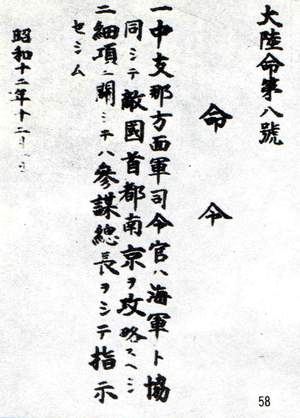 大陸命第八號
命令
一中支那方面軍司令官ハ海軍ト協
同シテ敵國首都南京ヲ攻略スヘシ
二細項ニ關シテハ參謀總長ヲシテ指示
セシム
昭和十二年十二月
58